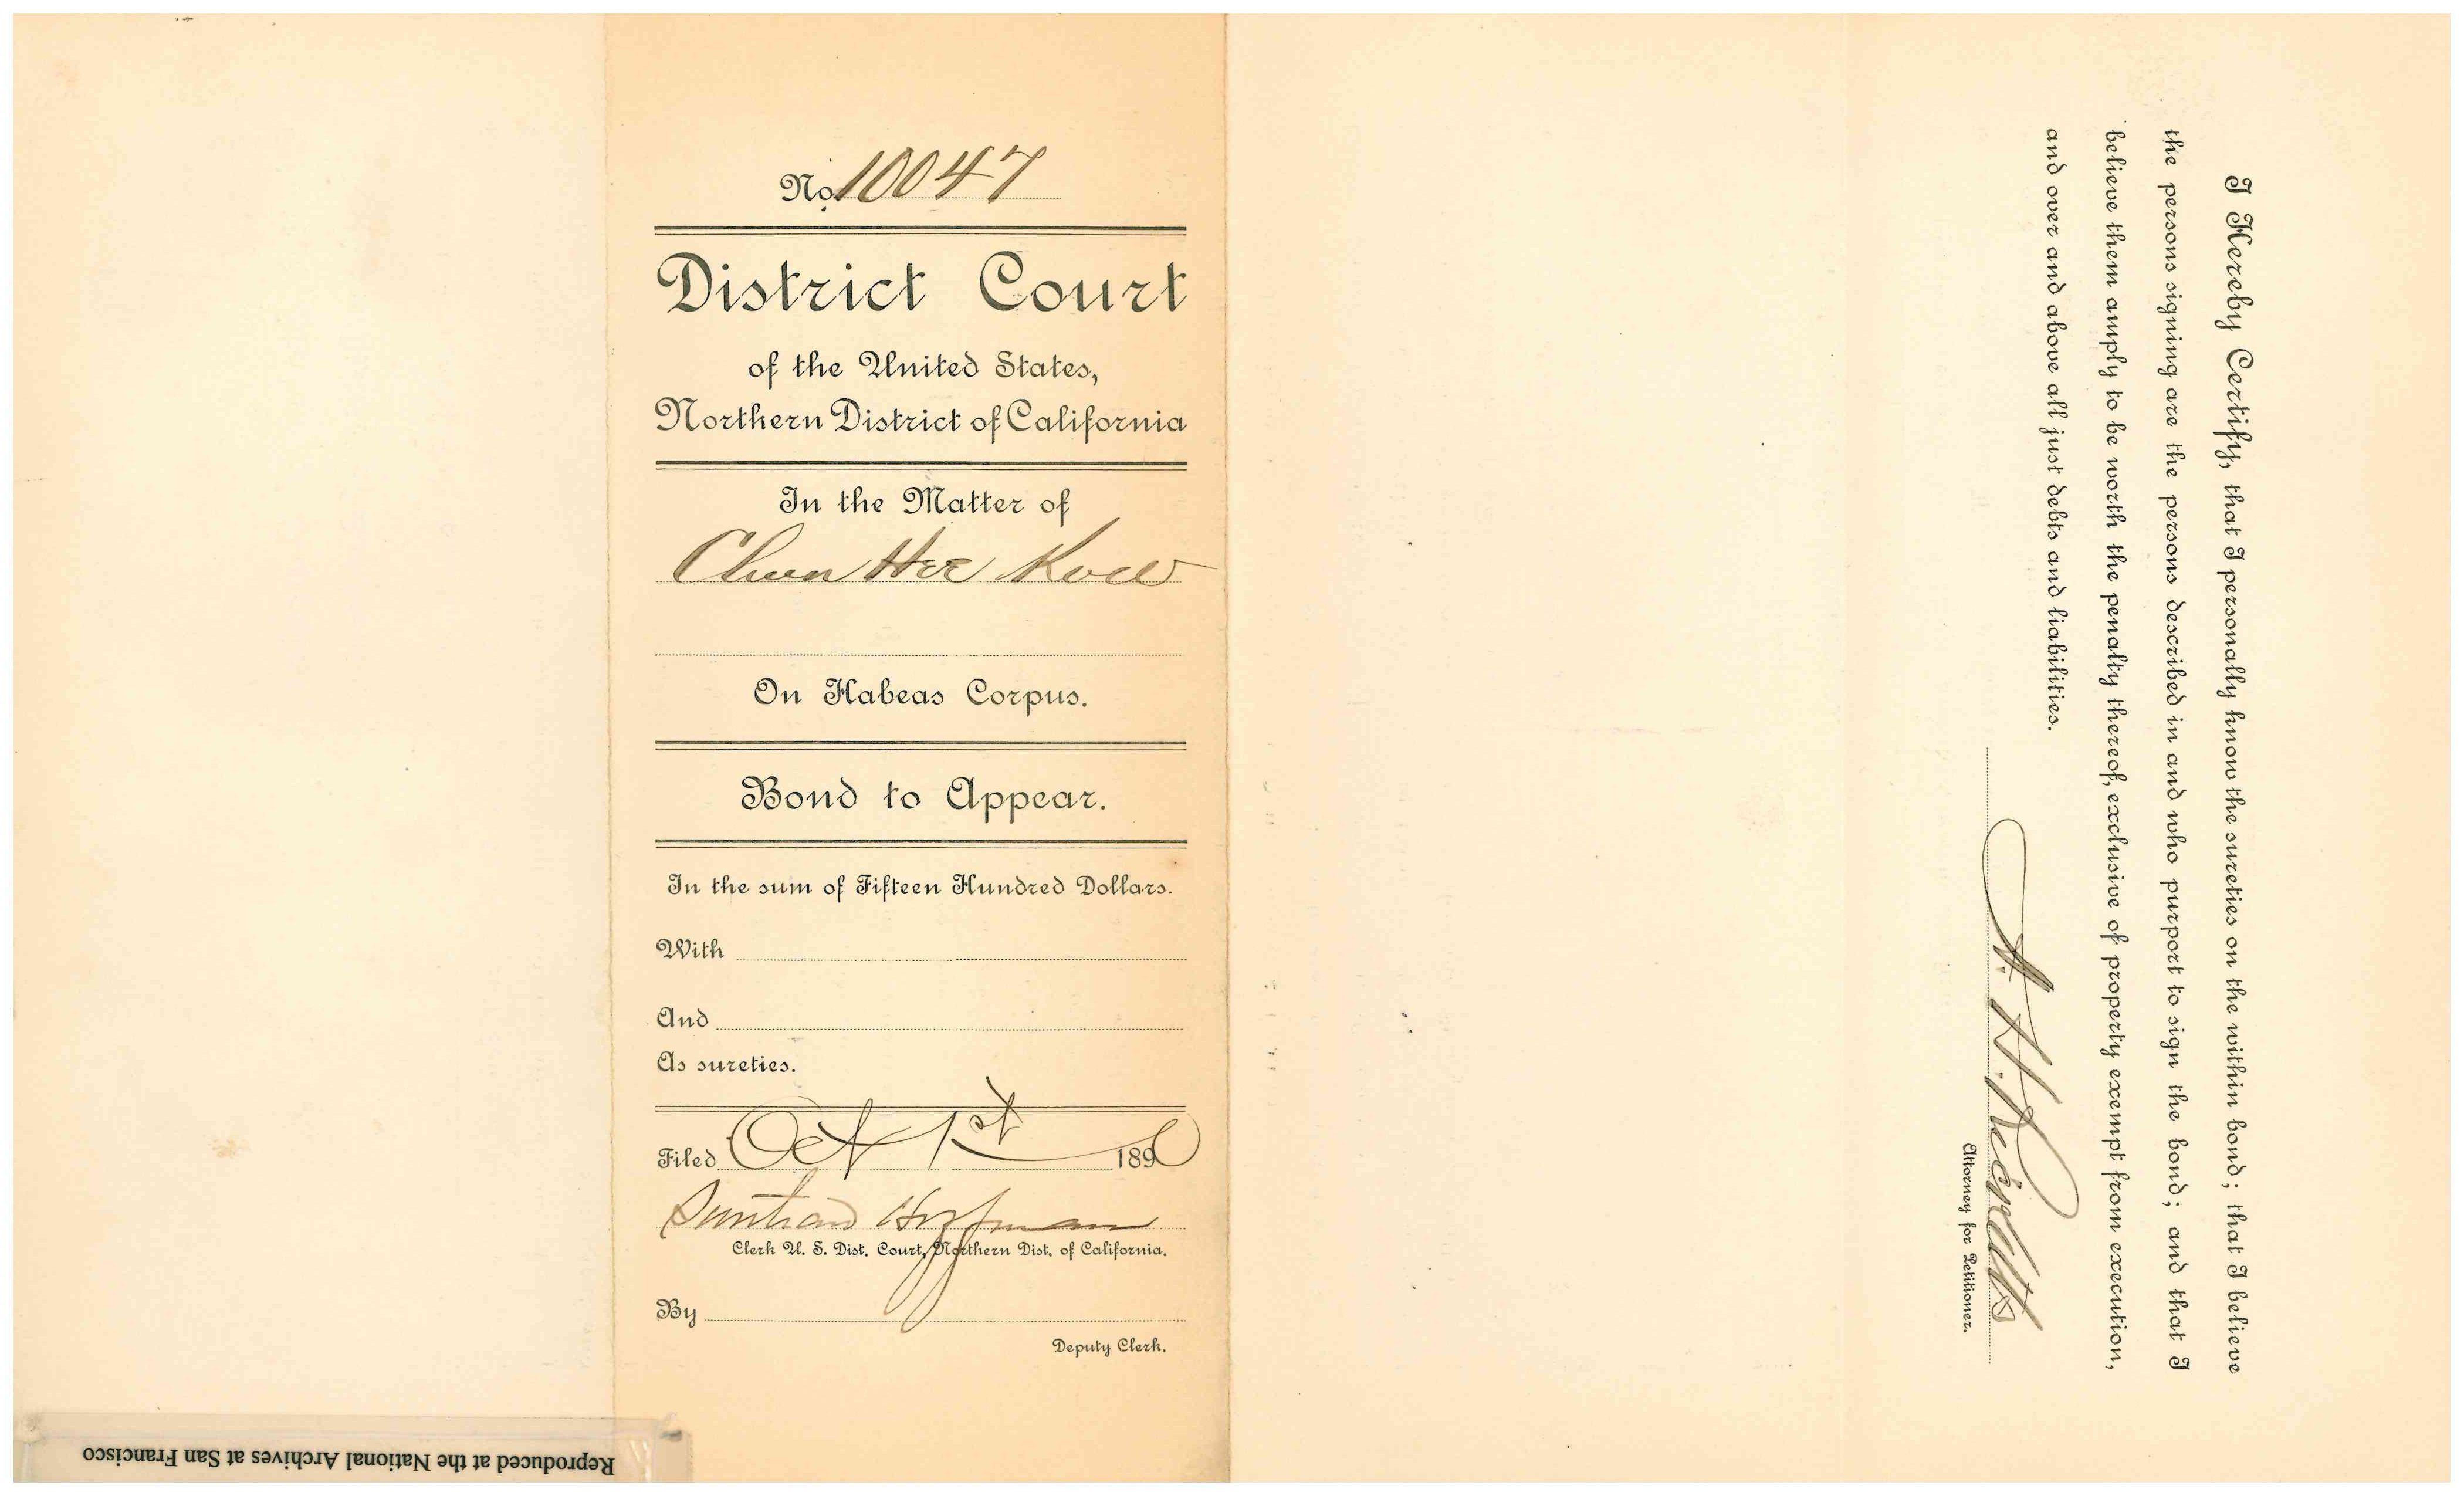 No. 10047
District Court
of the United States,
Northern District of California
In the Matter of
Chun Hee
On Habeas Corpus.
Bond to Appear.
In the sum of Fifteen Hundred Dollars.
With
And
As sureties.
Filed Oct 1st 1890
Hoffman
Clerk U. S. Dist. Court, Northern Dist. of California.
By
Deputy Clerk.
I Hereby Certify, that I personally know the sureties on the within bond; that I believe
the persons signing are the persons described in and who purport to sign the bond; and that I
believe them amply to be worth the penalty thereof, exclusive of property exempt from execution,
and over and above all just debts and liabilities.
Attorney for Petitioner.
Reproduced at the National Archives at San Francisco